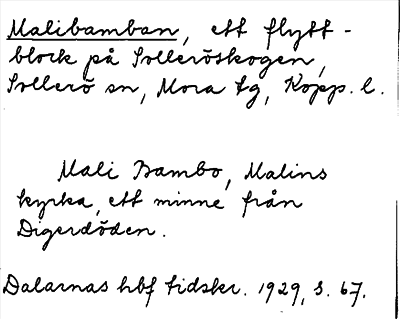 Malibamban, ett flytt-
block på Solleröskogen,
Sollerö sn, Mora tg, Kopp. l.
Mali Bambo, Malins
kyrka, ett minne från
Digerdöden.
Dalarnas hbf tidskr. 1929, s. 67.